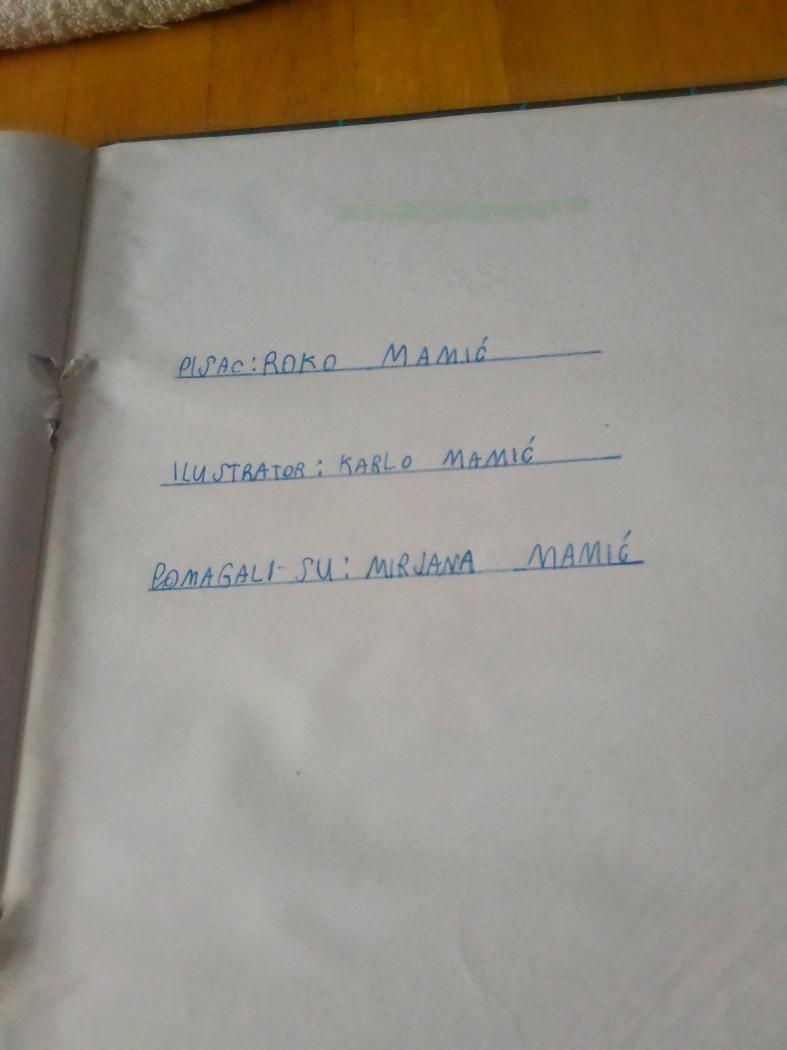 PISAC: ROKO MAMIĆ
ILUSTRATOR: KARLO MAMIĆ
POMAGALI SU: MIRJANA MAMIĆ